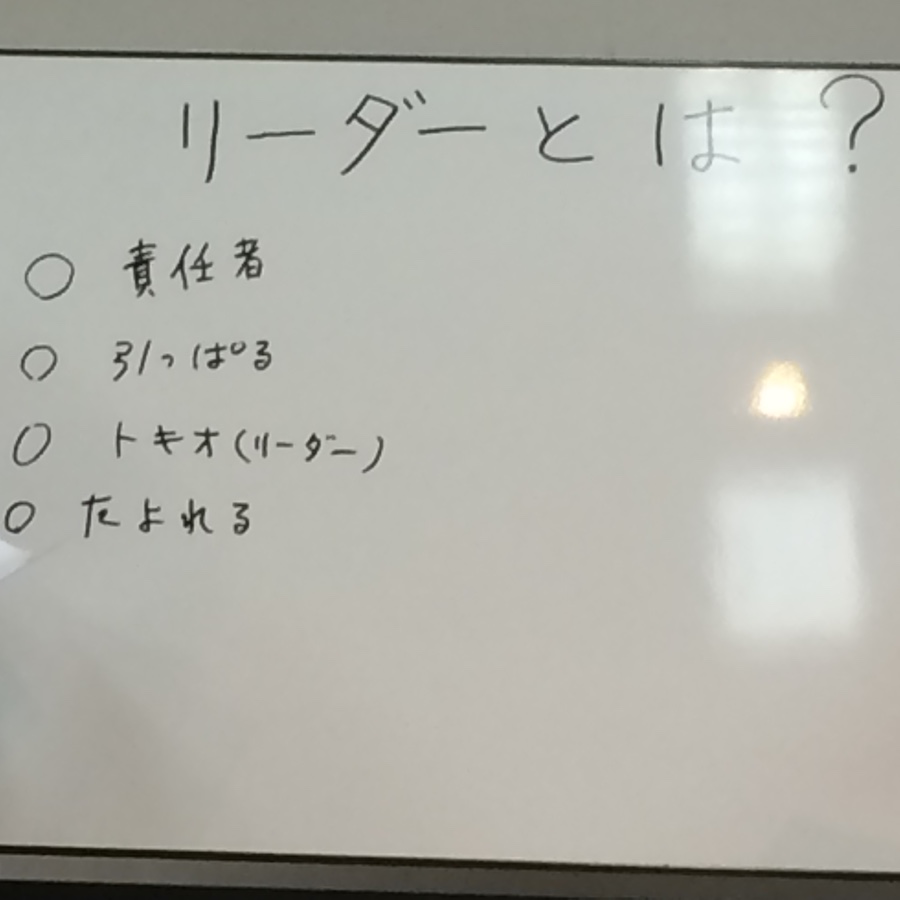 リーダーとは？
○ 責任者
○ 引っぱる
○ トキオ(リーダー)
○ たよれる